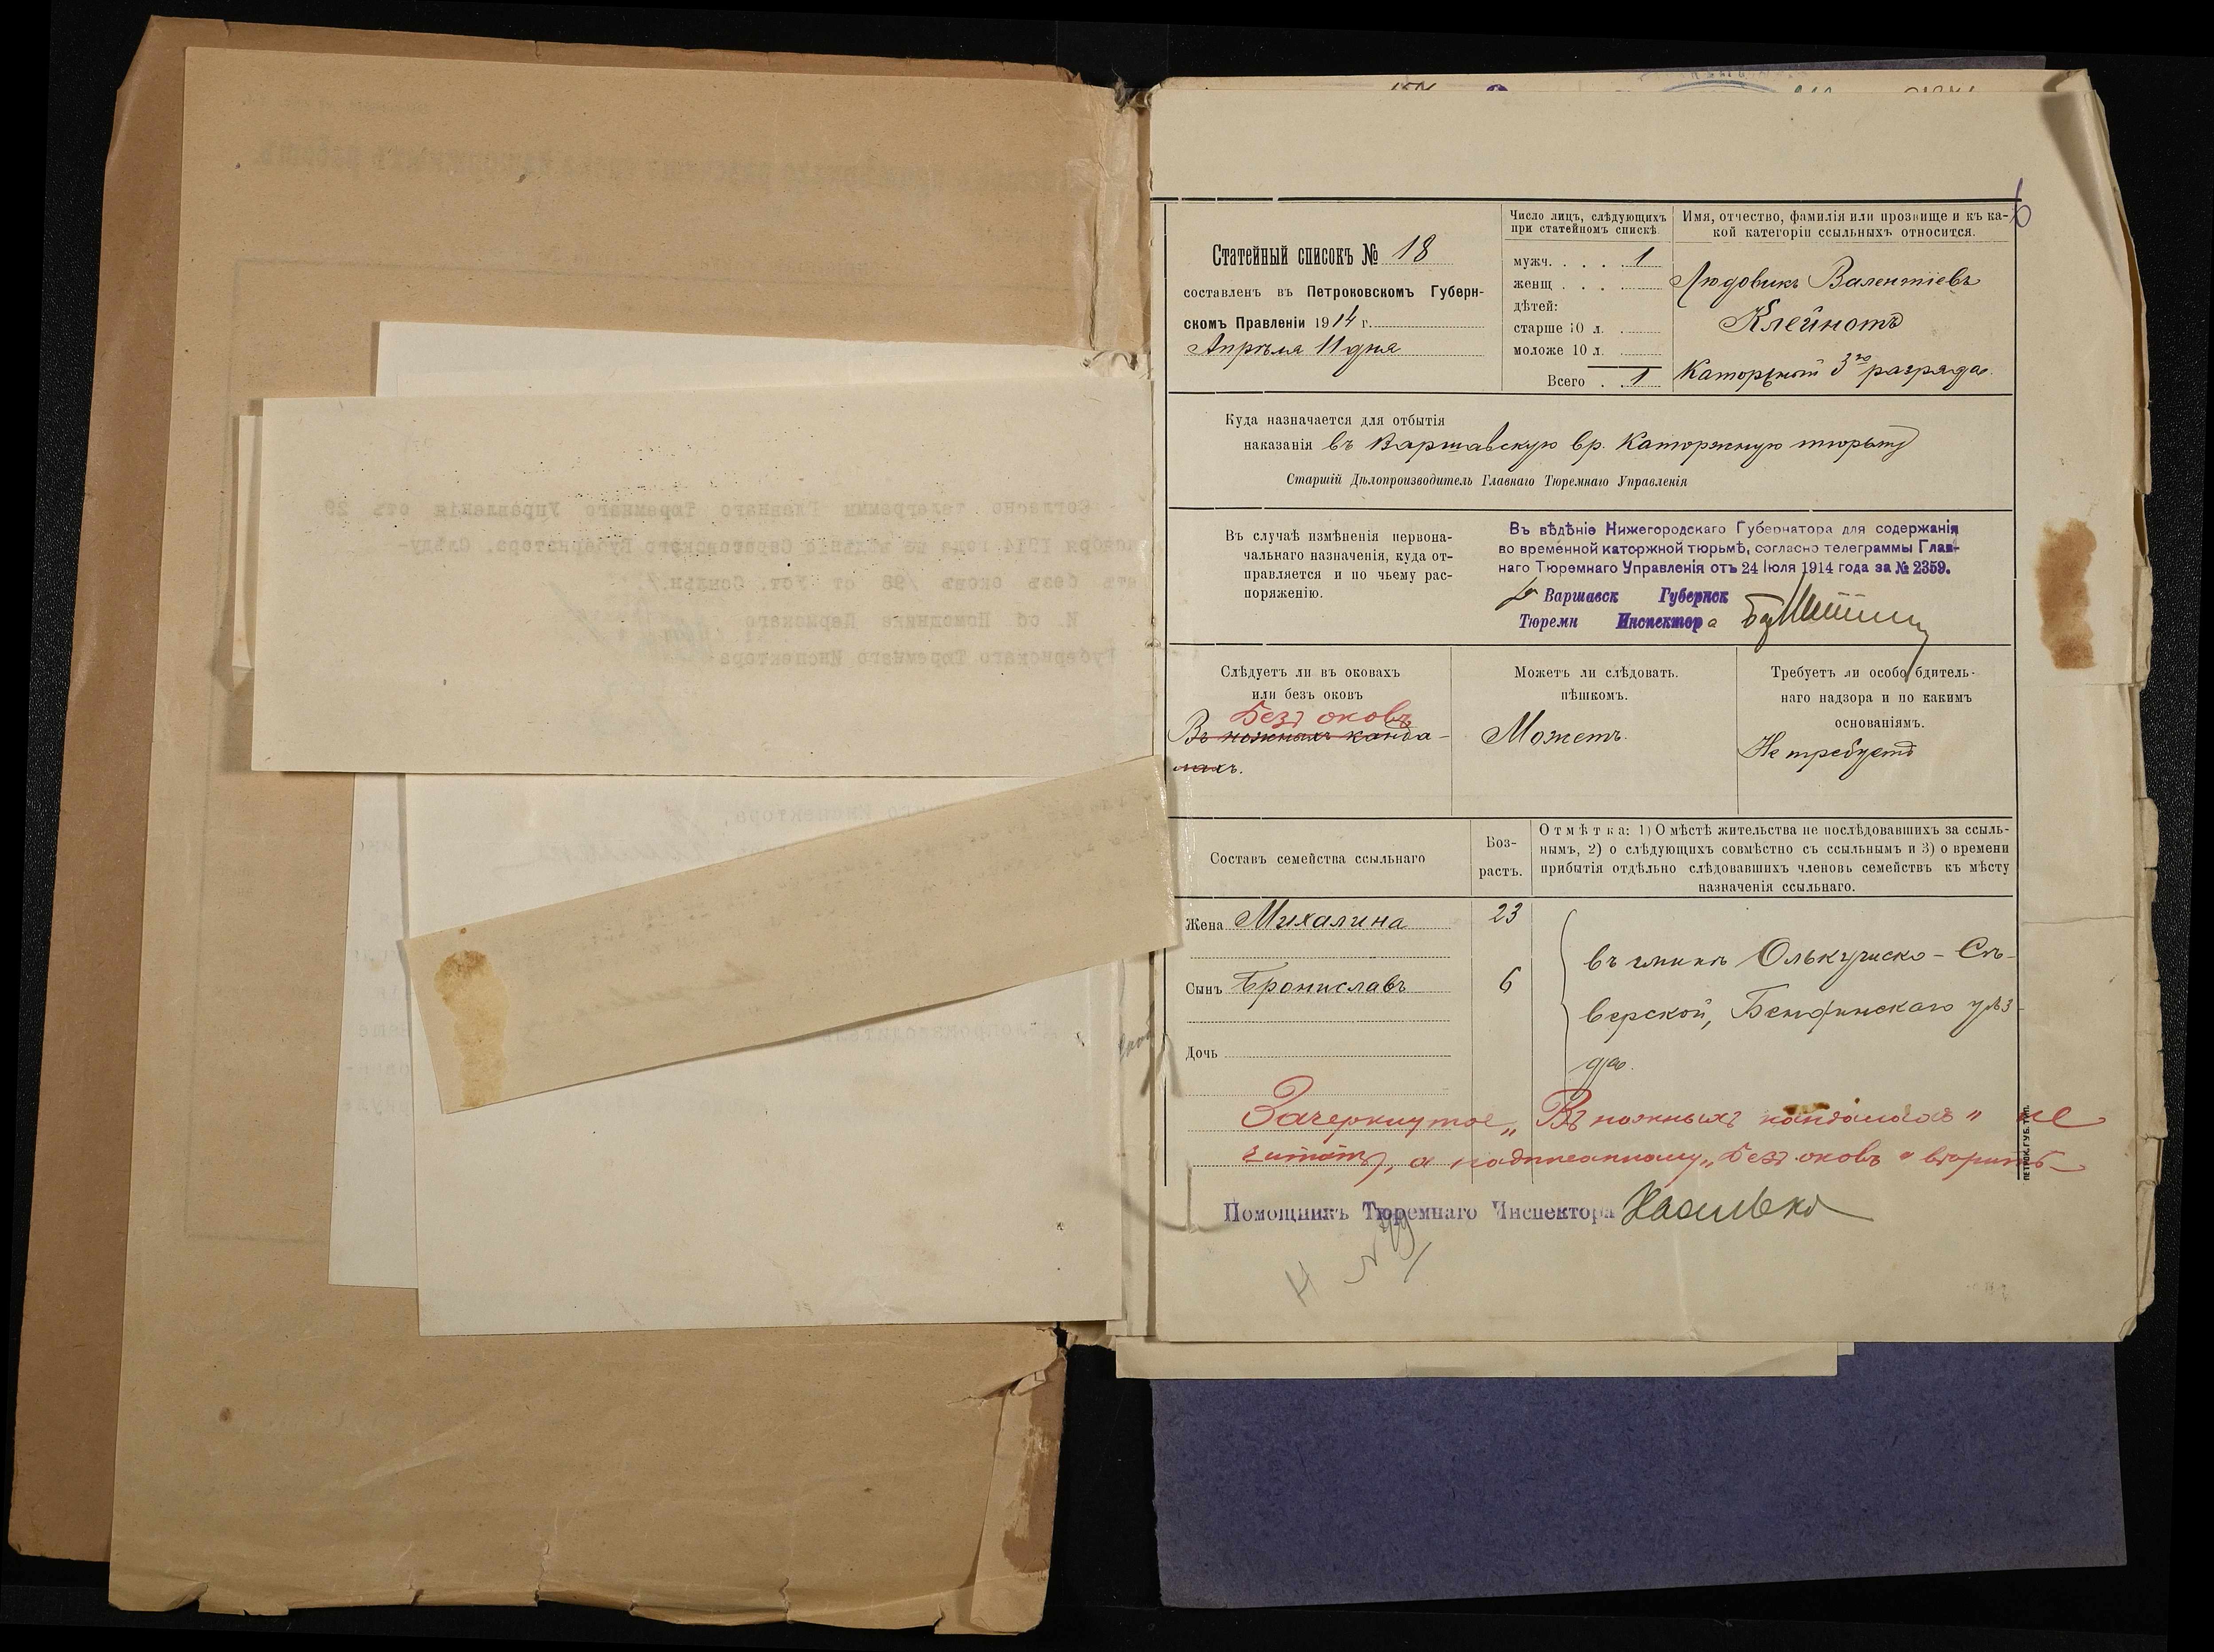 Статейный списокъ № 18
составленъ въ Петроковскомъ Губерн-
скомъ Правленіи 1914 г.
Апрѣля 11 дня
Число лицъ, слѣдующихъ
при статейномъ спискѣ
мужч. . . . . 1
женщ . . .
дѣтей:
старше 10 л. .
моложе 10 л.
Всего . . 1
Имя, отчество, фамилія или прозвище и къ ка-
кой категоріи ссыльныхъ относится.
6
Людовикъ Валентіевъ
Клейнотъ
Каторжный 3го разряда.
Куда назначается для отбытія
наказанія въ Варшавскую вр. Каторжную тюрьму
Старшій Дѣлопроизводитель Главнаго Тюремнаго Управленія
Въ случаѣ измѣненія первона-
чальнаго назначенія, куда от-
правляется и по чьему рас-
поряженію.
Въ вѣдѣніе Нижегородскаго Губернатора для содержанія
во временной каторжной тюрьмѣ, согласно телеграммы Глав-
наго Тюремнаго Управленія отъ 24 Іюля 1914 года за № 2359.
Варшавск Губернск
Тюремн Инспектора
Слѣдуетъ ли въ оковахъ
или безъ оковъ
Безъ оковъ
Въ ножныхъ канда-
лахъ.
Можетъ ли слѣдовать.
пѣшкомъ.
Можетъ.
Требуетъ ли особо бдитель-
наго надзора и по какимъ
основаніямъ.
Не требуетъ
Составъ семейства ссыльнаго
Воз-
растъ.
Отмѣтка: 1) О мѣстѣ жительства не послѣдовавшихъ за ссыль-
нымъ, 2) о слѣдующихъ совмѣстно съ ссыльнымъ и 3) о времени
прибытія отдѣльно слѣдовавшихъ членовъ семействъ къ мѣсту
назначенія ссыльнаго.
Жена Михалина 23
Сынъ Брониславъ 6
Дочь
въ гминѣ Олькушско-Сѣ-
верской, Бендинскаго уѣз-
да.
Зачеркнутое „Въ ножныхъ кандалахъ" не
читать, а надписанному „безъ оковъ" вѣрить
ПЕТРОК. ГУБ. ТИП.
Помощникъ Тюремнаго Инспектора
Согласно телеграммы Главнаго Тюремнаго Управленія отъ 29
ноября 1914 года въ вѣдѣніе Саратовскаго Губернатора. Слѣду-
етъ безъ оковъ /98 ст Уст. Ссыльн./.
И. об. Помощника Пермскаго
Губернскаго Тюремнаго Инспектора